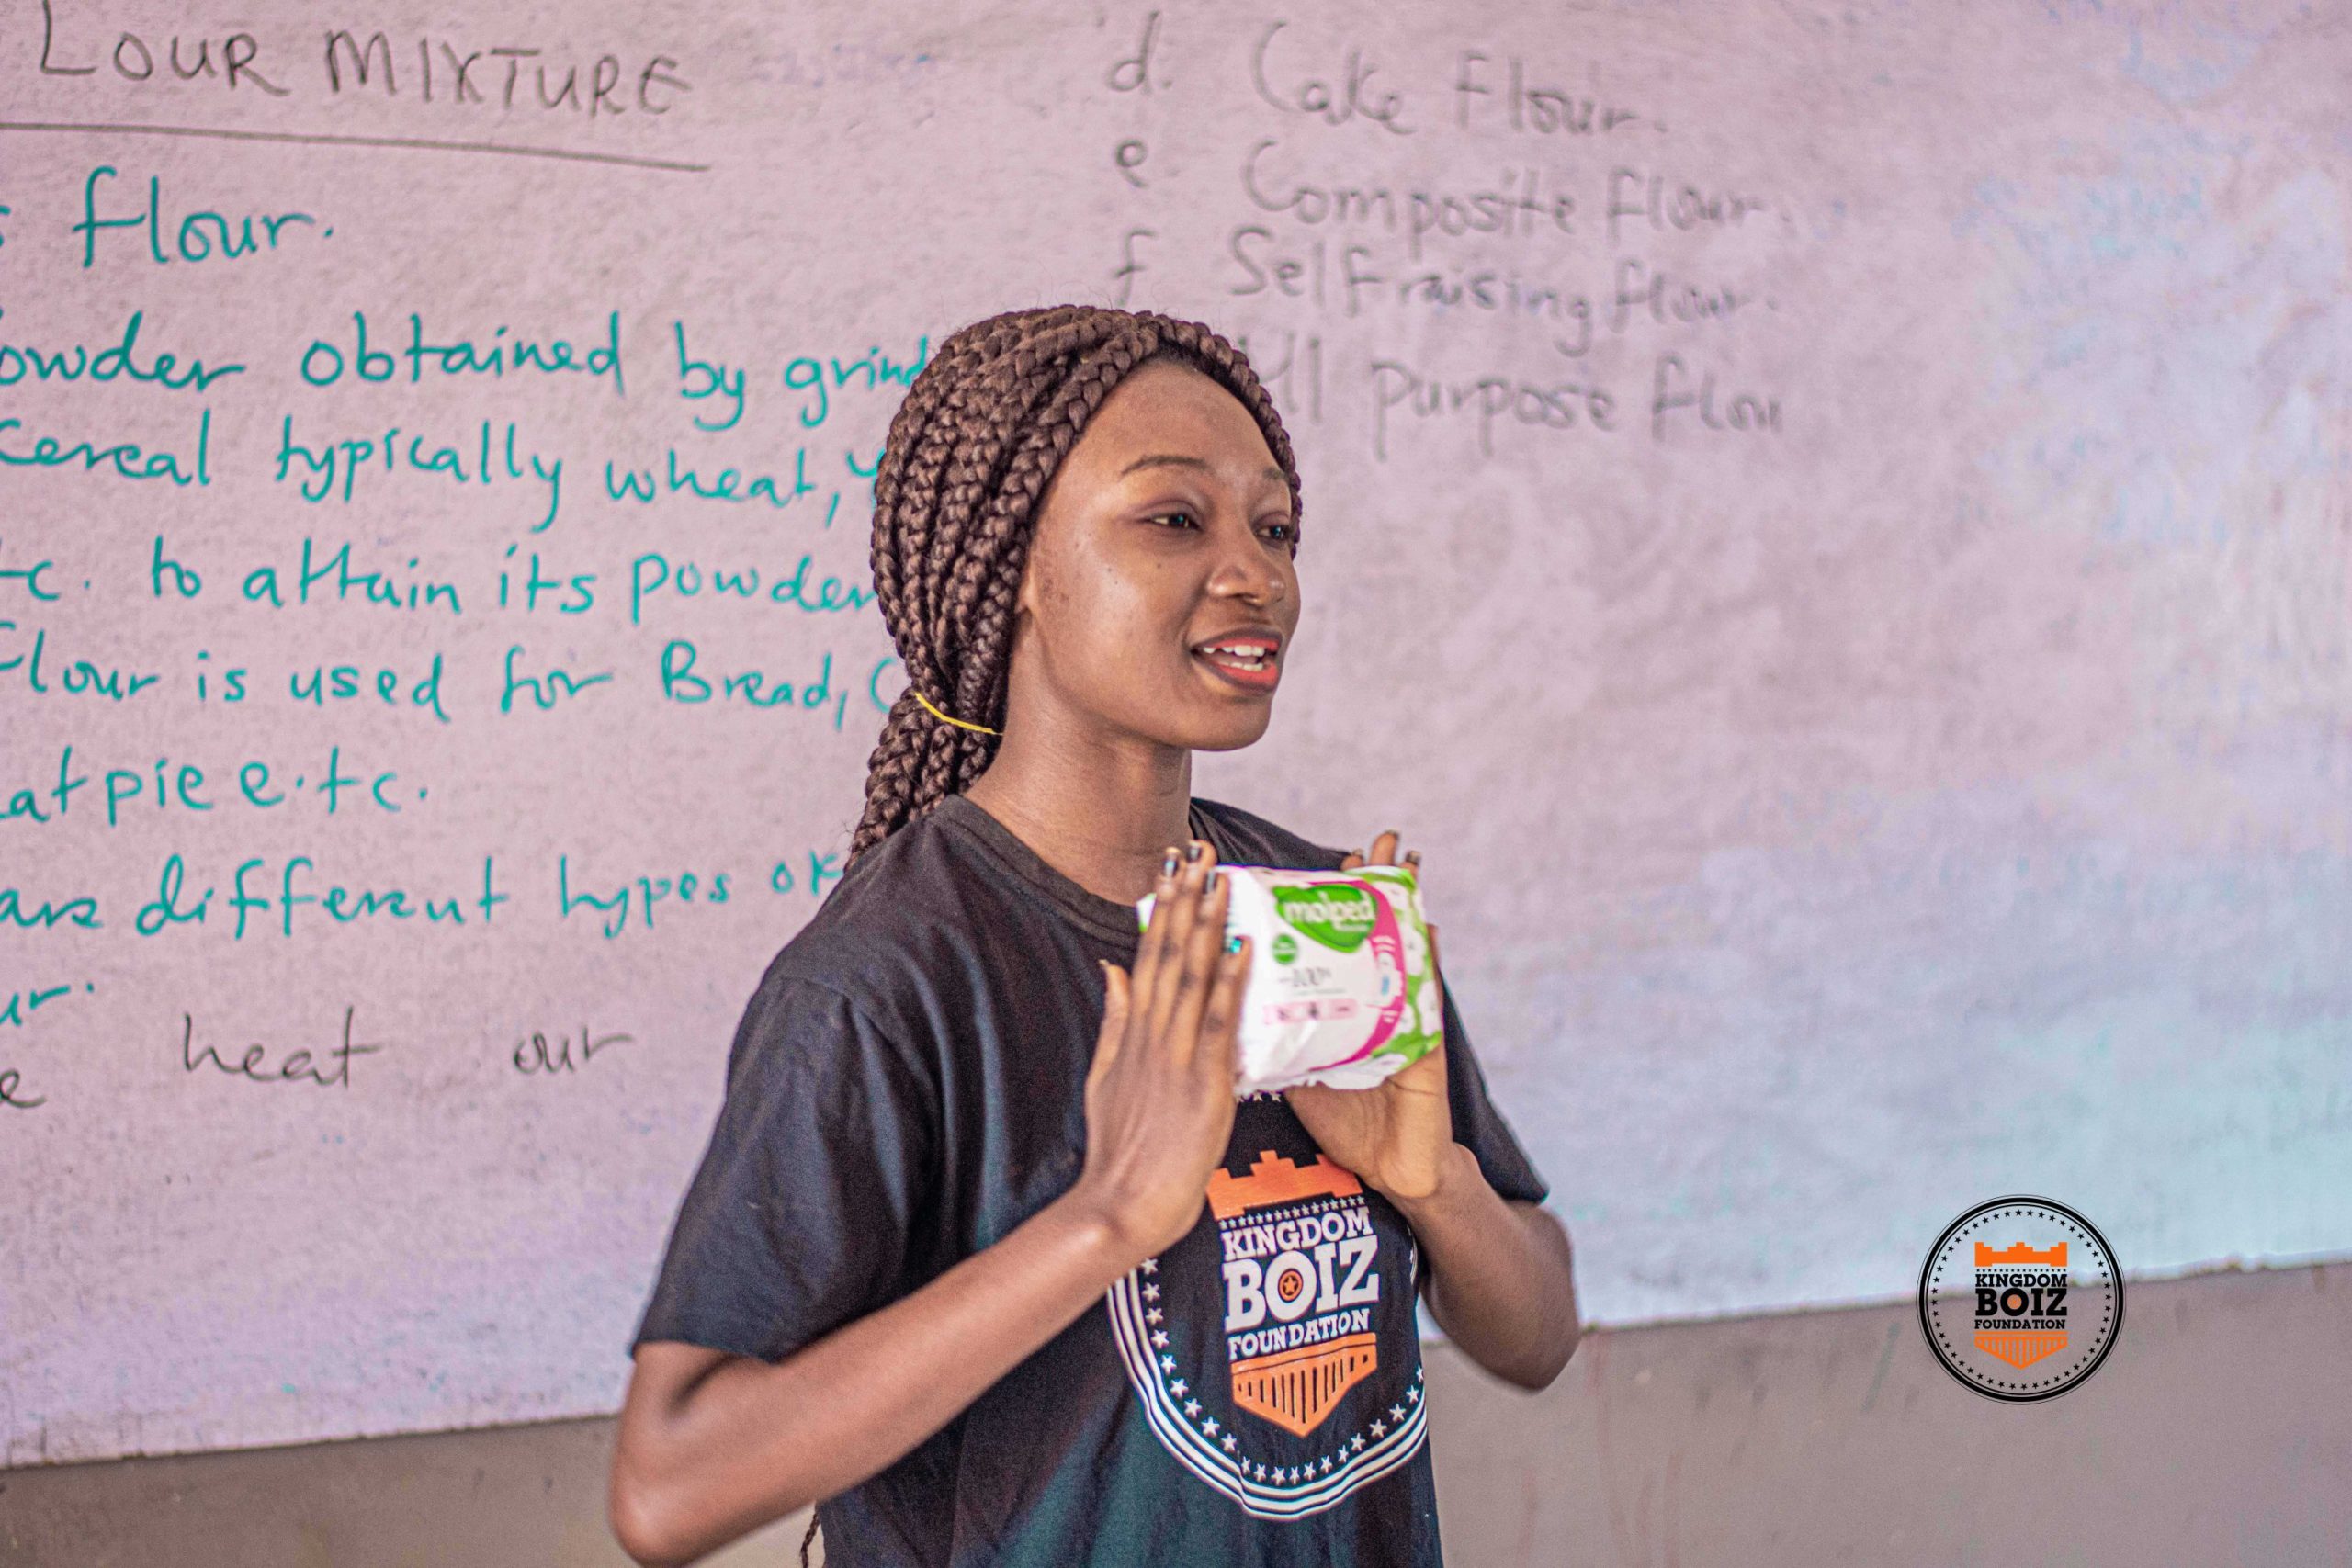 LOUR MIXTURE
s flour.
owder obtained by grind
cereal typically wheat,
tc. to attain its powder
flour is used for Bread, C
at pie e.t c.
are different types of
ur.
e heat our
d. Cake Flour.
e. Composite flour.
f Self raising flour.
All purpose flou
molped
100%
KINGDOM
BOIZ
FOUNDATION
KINGDOM
BOIZ
FOUNDATION